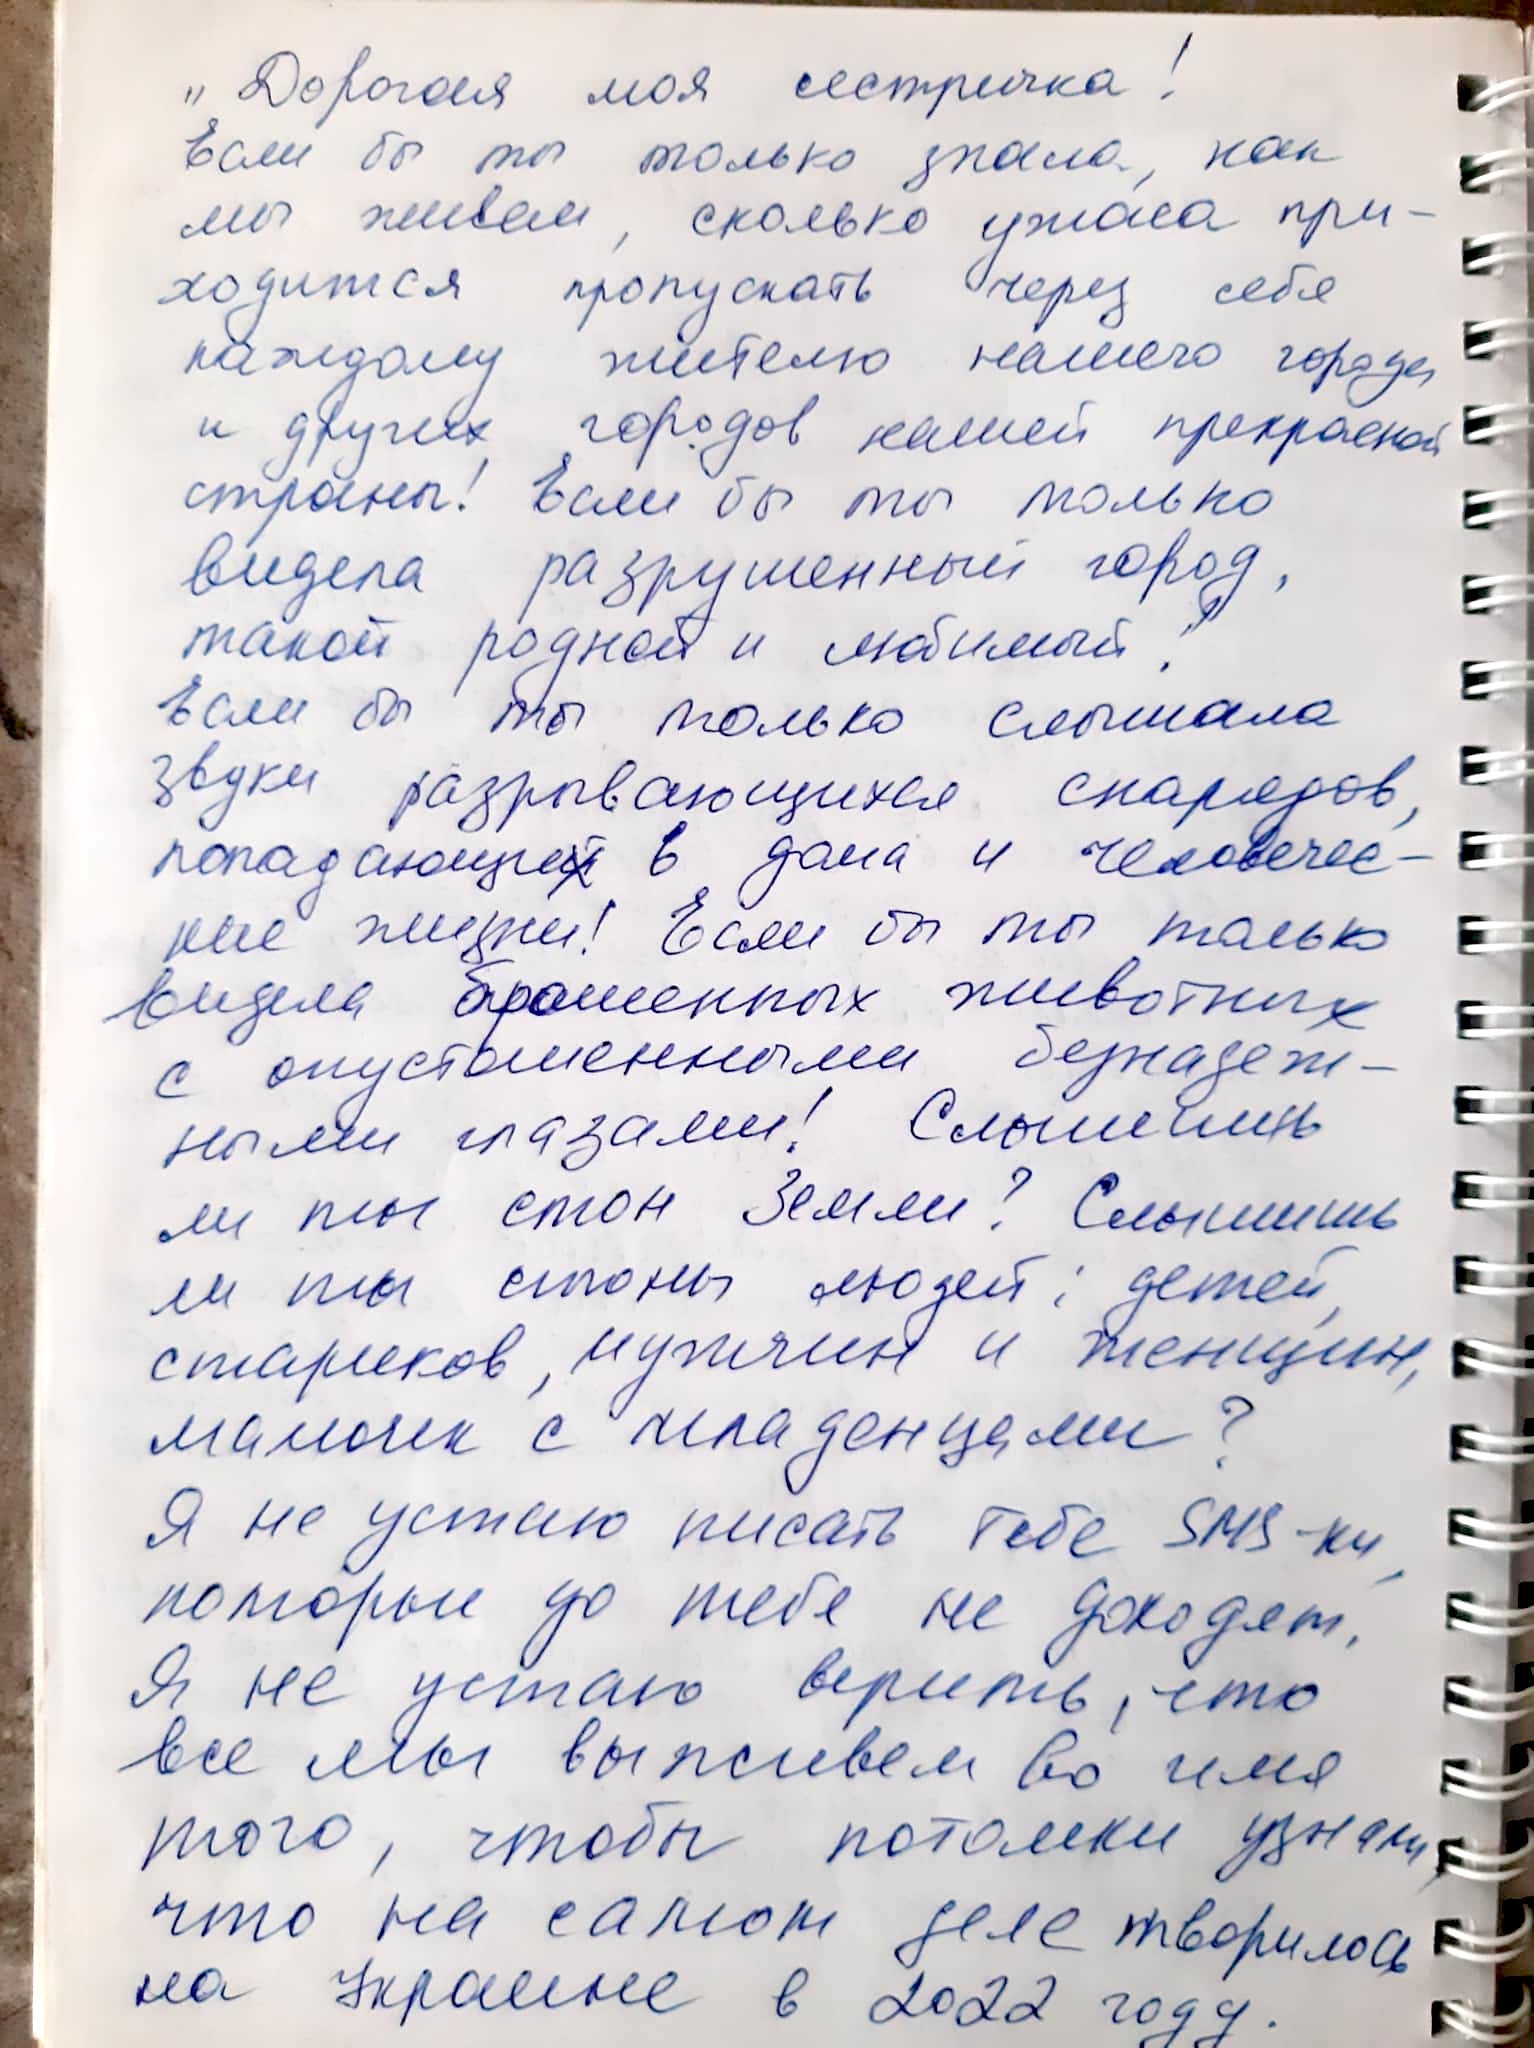 „Дорогая моя сестричка!
Если бы ты только знала, как
мы живем, сколько ужаса при-
ходится пропускать через себя
каждому жителю нашего города
и других городов нашей прекрасной
страны! Если бы ты только
видела разрушенный город,
такой родной и любимый!
Если бы ты только слышала
звуки разрывающихся снарядов,
попадающих в дома и человечес-
кие жизни! Если бы ты только
видела брошенных животных
с опустошенными безнадеж-
ными глазами! Слышишь
ли ты стон Земли? Слышишь
ли ты стоны людей: детей,
стариков, мужчин и женщин,
мамочек с младенцами?
Я не устаю писать тебе SMS-ки,
которые до тебя не доходят.
Я не устаю верить, что
все мы выживем во имя
того, чтобы потомки узнали,
что на самом деле творилось
на Украине в 2022 году.